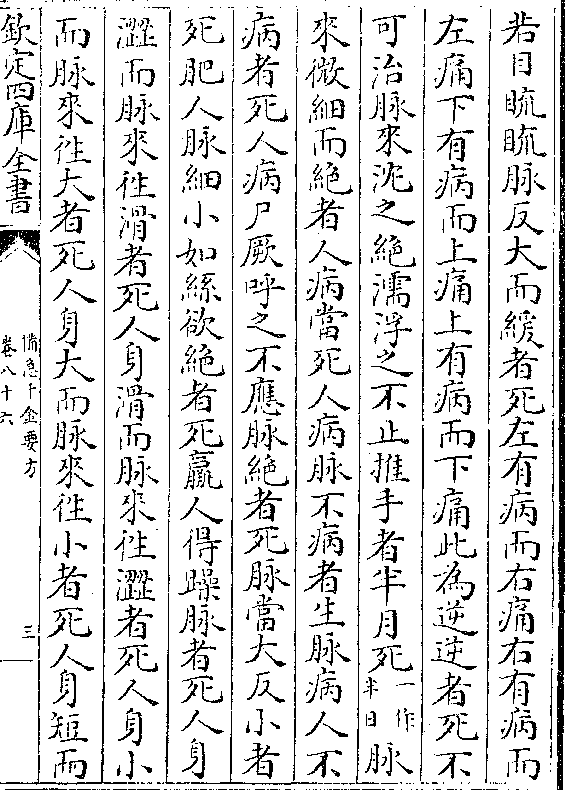 若目䀮䀮脉反大而緩者死左有病而右痛右有病而
左痛下有病而上痛上有病而下痛此為逆逆者死不
可治脉來沈之絶濡浮之不止推手者半月死一作半日脉
來微細而絶者人病當死人病脉不病者生脉病人不
病者死人病尸厥呼之不應脉絶者死脉當大反小者
死肥人脉細小如絲欲絶者死羸人得躁脉者死人身
澀而脉來徃滑者死人身滑而脉來徃澀者死人身小
而脉來徃大者死人身大而脉來徃小者死人身短而
欽定四庫全書
備急千金要方
卷八十六
三